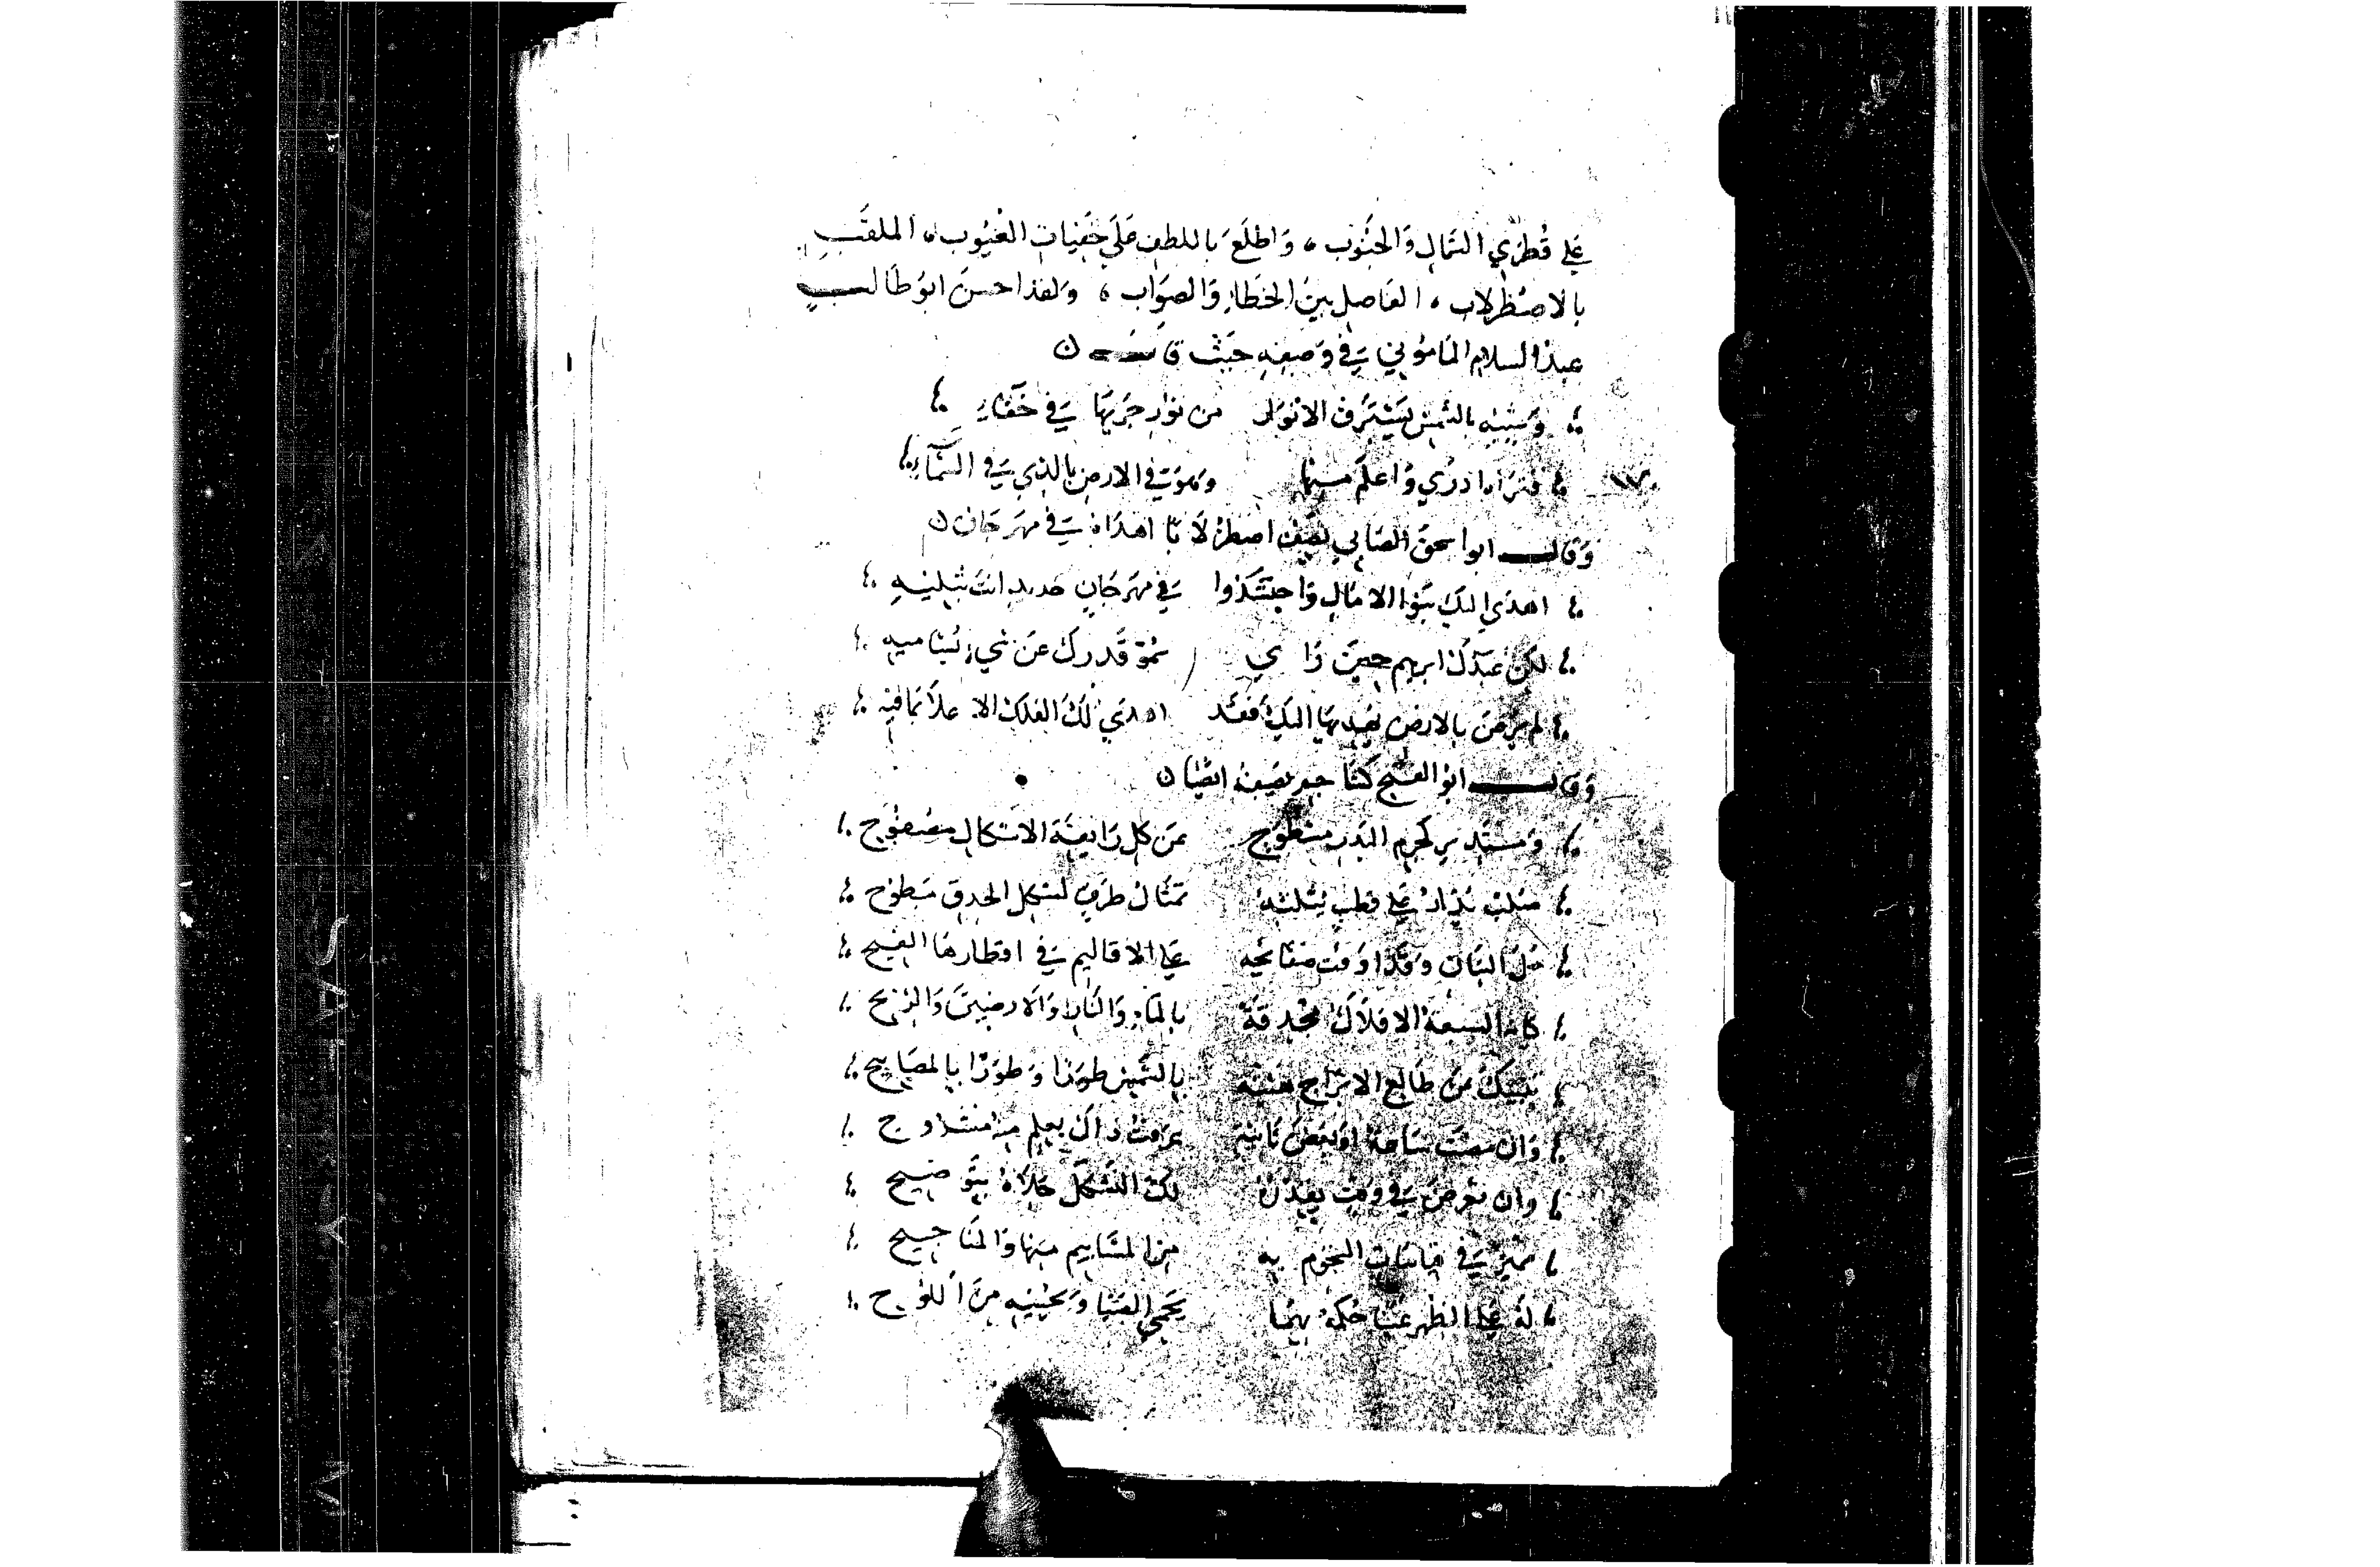 علي قُطرَي الشمال وَالجنُوب ، وَاطلعَ باللطف عَلَى خَفيات الغيُوب ، الملقَب
بالاصطرلاب ، الفاصل بين الخطاءِ وَالصوَاب ، وَلقد احسنَ ابوُ طالب
عبد السلام المامُوني في وَصفه حَيث قال
وَشبيه بالشمس يسترق الانوَار من نور جرَيهَا في خَفاءِ
فترَاه ادرَي وَاعلم منها وَهوَ في الارض بالذي في السّمَآءِ
وَقال ابو اسحق الصَابي يصف اصطرلابا اهدَاهُ في مهرجَان
اهدَي اليك بنوا الامَال وَاحتشدوا في مهرجَان جديد انتَ تبليه
لكن عَبدك ابرهيم حينَ رَاي سُموّ قَدرك عن شيءٍ يُساميه
لم يرضَ بالارض يهديهَا اليكَ فقد اهدَي لكَ الفلكَ الاعلا بمَا فيه
وَقال ابوُ الفتح كشاجم يصفه ايضًا
وَمستدير كجرم البَدر مسطوح عَن كل رَايقة الاشكال مصفوح
صُلب يُدَارُ علي قطب يثبته تمثال طرف لشكل الحذق مسطوح
مثل البنان وَقد اوفت صَفايحه علي الاقاليم في اقطارها الفيح
كانما السبعة الافلاك محدقة بالمَاءِ وَالنار وَالارضينَ وَالريح
تنبيك عن طالع الابراج هيئته بالشمس طورًا وَطورًا بالمصَابيح
وَان مضت سَاعة اوبعضُ ثانية عرفت ذاك بعلم منه مشروح
وَان تعرضَ في وَقت يقدره لك التشكل جَلاهُ بتوضيح
مميز في قياسات النجوم به من المشاييم منها وَالمنَاجيح
لهُ علي الظهر عينا حكمة بهمَا يَحوي الضيا وَيجنيه من اللوح